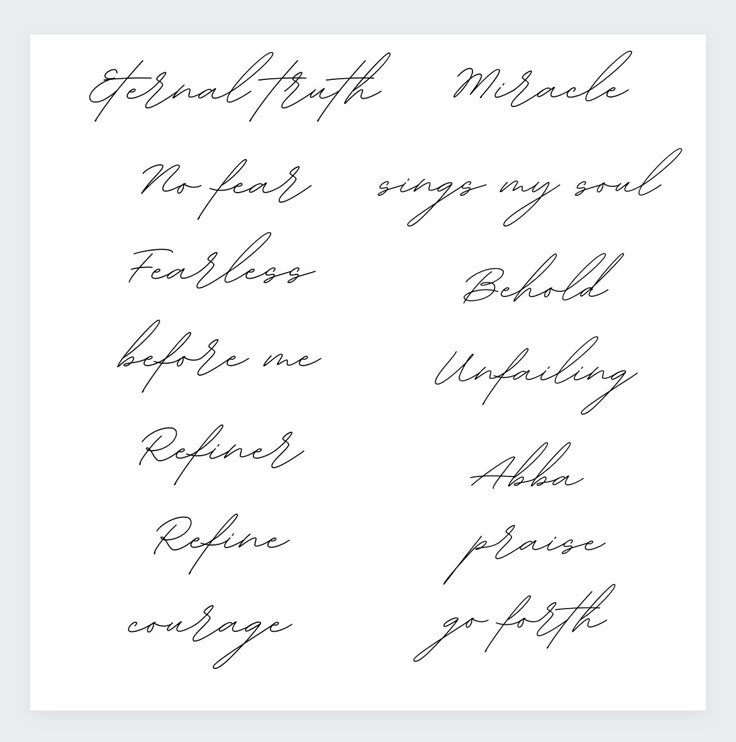 Eternal truth
No fear
Fearless
before me
Refiner
Refine
courage
Miracle
sings my soul
Behold
Unfailing
Abba
praise
go forth